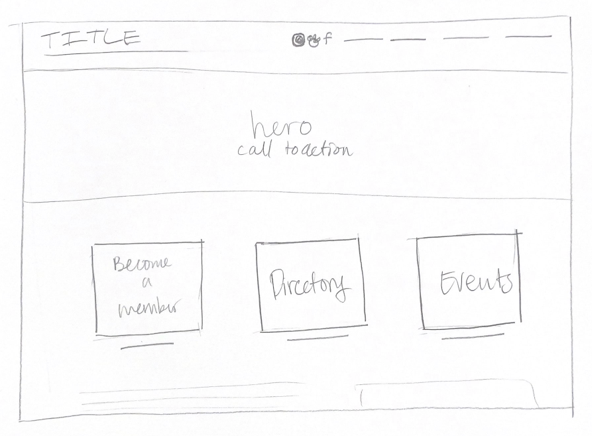 TITLE
f
hero
call to action
Become
a
member
Directory
Events